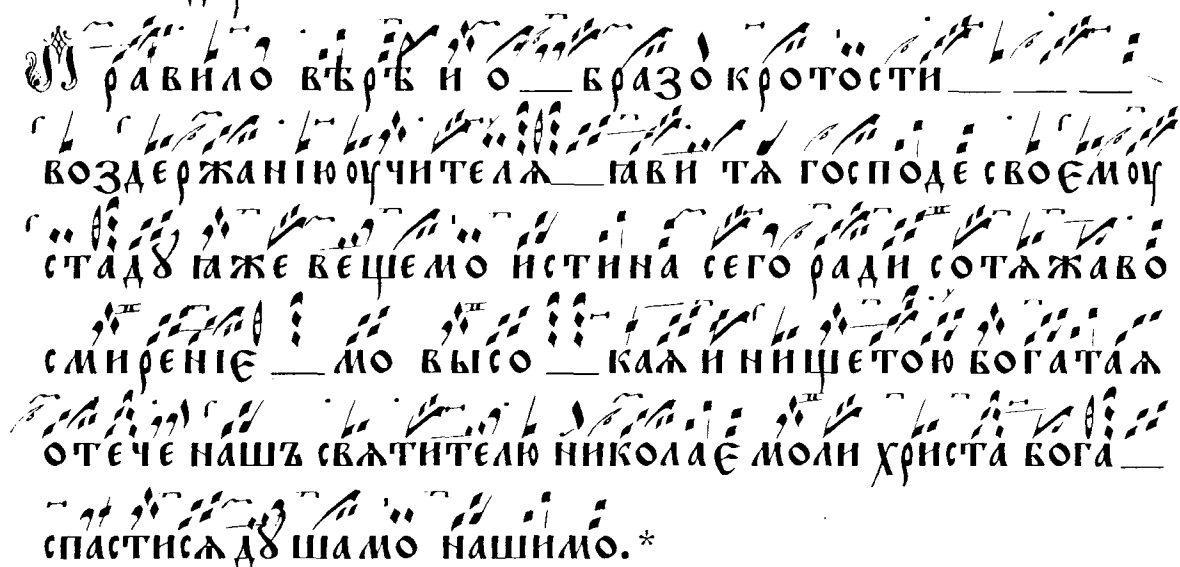 Правило вѣрѣ и о__бразо кротости__ __ __
воздержанію оучителя__ꙗви тѧ господе своємоу
стадꙋ ꙗже вещемо истина сего ради сотѧжаво
смиреніє__мо высо__каѧ и нищетою богатаѧ
отече нашъ свѧтителю николає моли христа бога__
спастисѧ дꙋшамо нашимо.*